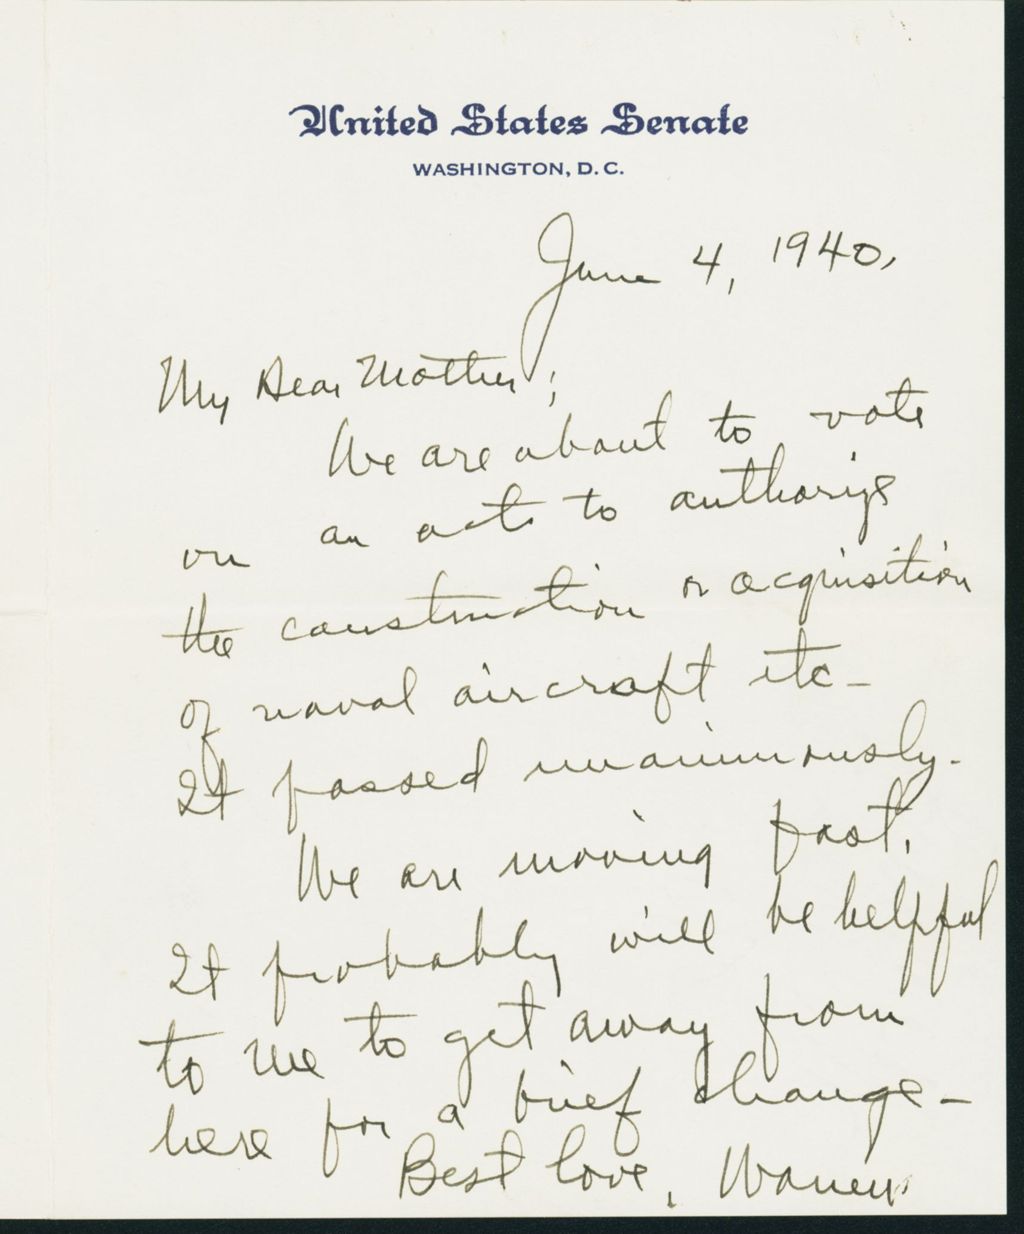 United States Senate
WASHINGTON, D. C.
June 4, 1940.
My Dear Mother;
We are about to vote
on an act to authorize
the construction or acquisition
of naval aircraft etc-
It passed unanimously.
We are moving fast.
It probably will be helpful
to me to get away from
here for a brief change-
Best love, Warren